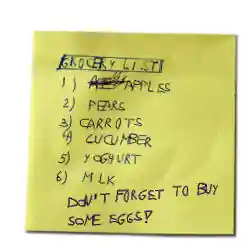 GROCERY LIST
1) APPLES
2) PEARS
3) CARROTS
4) CUCUMBER
5) YOGHURT
6) MILK
DON'T FORGET TO BUY
SOME EGGS!